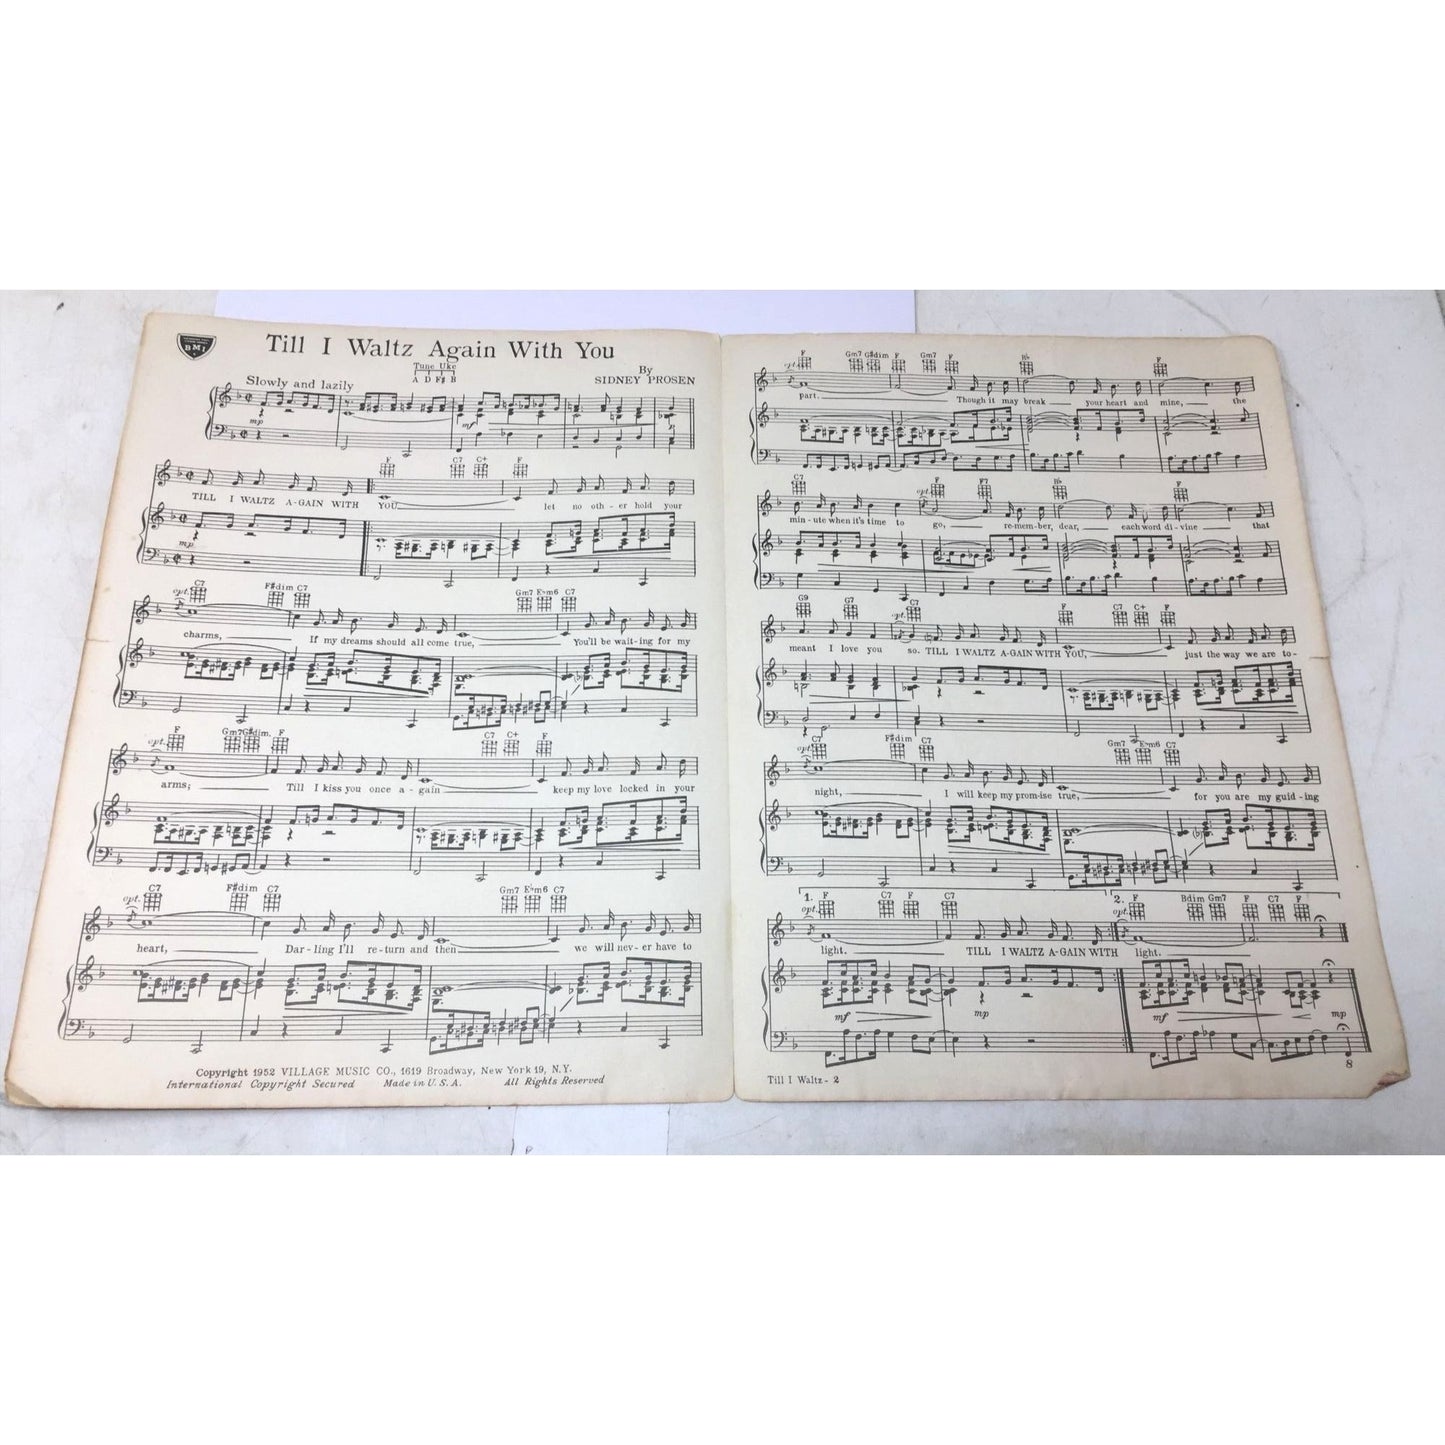 BMI
Till I Waltz Again With You
Tune Uke
A D F♯ B
By
SIDNEY PROSEN
Slowly and lazily
mp
mf
F C7 C+ F
TILL I WALTZ A-GAIN WITH YOU let no oth-er hold your
mp
opt. C7 F♯dim C7 Gm7 E♭m6 C7
charms, If my dreams should all come true, You'll be wait-ing for my
opt. F Gm7 G♯dim. F C7 C+ F
arms; Till I kiss you once a-gain keep my love locked in your
opt. C7 F♯dim C7 Gm7 E♭m6 C7
heart, Dar-ling I'll re-turn and then we will nev-er have to
Copyright 1952 VILLAGE MUSIC CO., 1619 Broadway, New York 19, N.Y.
International Copyright Secured Made in U.S.A. All Rights Reserved
opt. F Gm7 G♯dim F Gm7 F B♭ F
part. Though it may break your heart and mine, the
C7 opt. F F7 B♭ F
min-ute when it's time to go, re-mem-ber, dear, each word di-vine that
G9 G7 opt. C7 F C7 C+ F
meant I love you so. TILL I WALTZ A-GAIN WITH YOU, just the way we are to-
opt. C7 F♯dim C7 Gm7 E♭m6 C7
night, I will keep my prom-ise true, for you are my guid-ing
1. opt. F C7 F C7 2. opt. F Bdim Gm7 F C7 F
light. TILL I WALTZ A-GAIN WITH light.
mf mp mf mp
8
Till I Waltz - 2